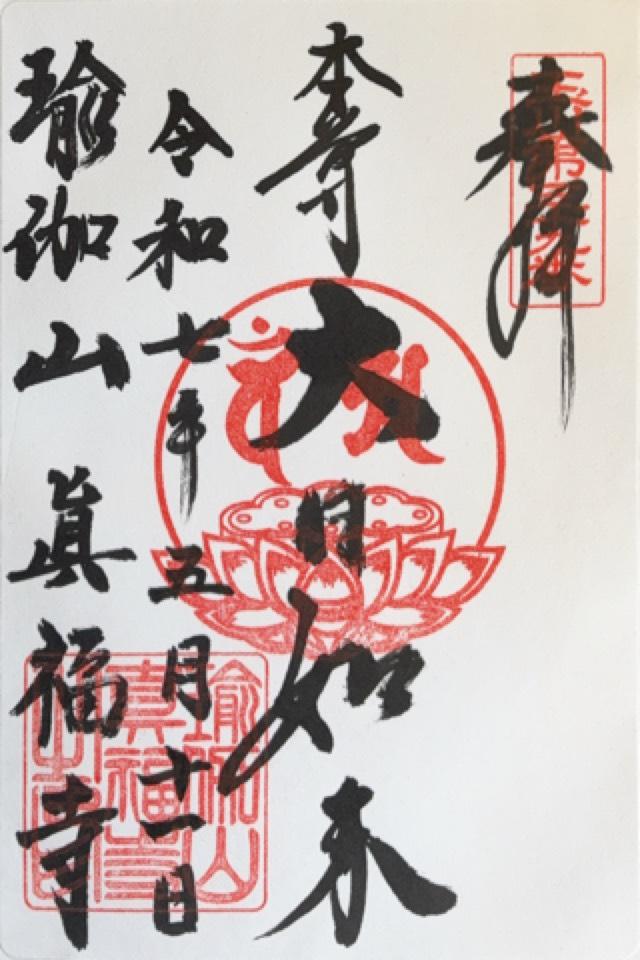 奉拝
本尊
大日如来
令和七年五月十一日
瑜伽山眞福寺
瑜伽山
真福寺